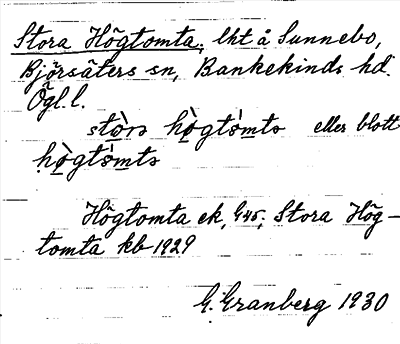 Stora Högtomta, lht å Sunnebo,
Björsäters sn, Bankekinds hd.
Ögl.l.
stòra hògtómta eller blott
hògtómta
Högtomta ek, G45; Stora Hög-
tomta kb 1929
G. Granberg 1930